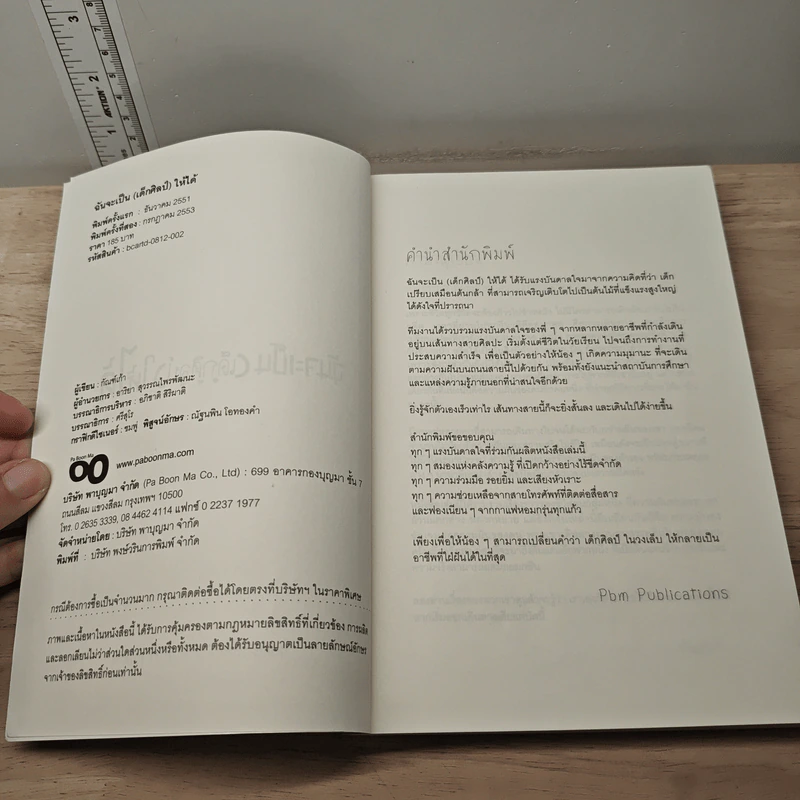 ฉันจะเป็น (เด็กศิลป์) ให้ได้
พิมพ์ครั้งแรก : ธันวาคม 2551
พิมพ์ครั้งที่สอง : กรกฎาคม 2553
ราคา 185 บาท
รหัสสินค้า : bcartd-0812-002
ผู้เขียน : กัณฑ์เก้า
ผู้อำนวยการ : อาริยา สุวรรณไพรพัฒนะ
บรรณาธิการบริหาร : อภิชาติ สิริมาติ
บรรณาธิการ : ศรีสุโร
กราฟิกดีไซเนอร์ : ชมพู่ พิสูจน์อักษร : ณัฐนพิน โอทองคำ
Pa Boon Ma
www.paboonma.com
บริษัท พาบุญมา จำกัด (Pa Boon Ma Co., Ltd) : 699 อาคารกองบุญมา ชั้น 7
ถนนสีลม แขวงสีลม กรุงเทพฯ 10500
โทร. 0 2635 3339, 08 4462 4114 แฟกซ์ 0 2237 1977
จัดจำหน่ายโดย : บริษัท พาบุญมา จำกัด
พิมพ์ที่ : บริษัท พงษ์วรินการพิมพ์ จำกัด
กรณีต้องการซื้อเป็นจำนวนมาก กรุณาติดต่อซื้อได้โดยตรงที่บริษัทฯ ในราคาพิเศษ
ภาพและเนื้อหาในหนังสือนี้ ได้รับการคุ้มครองตามกฎหมายลิขสิทธิ์ที่เกี่ยวข้อง การผลิต
และลอกเลียนไม่ว่าส่วนใดส่วนหนึ่งหรือทั้งหมด ต้องได้รับอนุญาตเป็นลายลักษณ์อักษร
จากเจ้าของลิขสิทธิ์ก่อนเท่านั้น
คำนำสำนักพิมพ์
ฉันจะเป็น (เด็กศิลป์) ให้ได้ ได้รับแรงบันดาลใจมาจากความคิดที่ว่า เด็ก
เปรียบเสมือนต้นกล้า ที่สามารถเจริญเติบโตไปเป็นต้นไม้ที่แข็งแรงสูงใหญ่
ได้ดังใจที่ปรารถนา
ทีมงานได้รวบรวมแรงบันดาลใจของพี่ ๆ จากหลากหลายอาชีพที่กำลังเดิน
อยู่บนเส้นทางสายศิลปะ เริ่มตั้งแต่ชีวิตในวัยเรียน ไปจนถึงการทำงานที่
ประสบความสำเร็จ เพื่อเป็นตัวอย่างให้น้อง ๆ เกิดความมุมานะ ที่จะเดิน
ตามความฝันบนถนนสายนี้ไปด้วยกัน พร้อมทั้งยังแนะนำสถาบันการศึกษา
และแหล่งความรู้ภายนอกที่น่าสนใจอีกด้วย
ยิ่งรู้จักตัวเองเร็วเท่าไร เส้นทางสายนี้ก็จะยิ่งสั้นลง และเดินไปได้ง่ายขึ้น
สำนักพิมพ์ขอขอบคุณ
ทุก ๆ แรงบันดาลใจที่ร่วมกันผลิตหนังสือเล่มนี้
ทุก ๆ สมองแห่งคลังความรู้ ที่เปิดกว้างอย่างไร้ขีดจำกัด
ทุก ๆ ความร่วมมือ รอยยิ้ม และเสียงหัวเราะ
ทุก ๆ ความช่วยเหลือจากสายโทรศัพท์ที่ติดต่อสื่อสาร
และฟองเนียน ๆ จากกาแฟหอมกรุ่นทุกแก้ว
เพียงเพื่อให้น้อง ๆ สามารถเปลี่ยนคำว่า เด็กศิลป์ ในวงเล็บ ให้กลายเป็น
อาชีพที่ใฝ่ฝันได้ในที่สุด
Pbm Publications